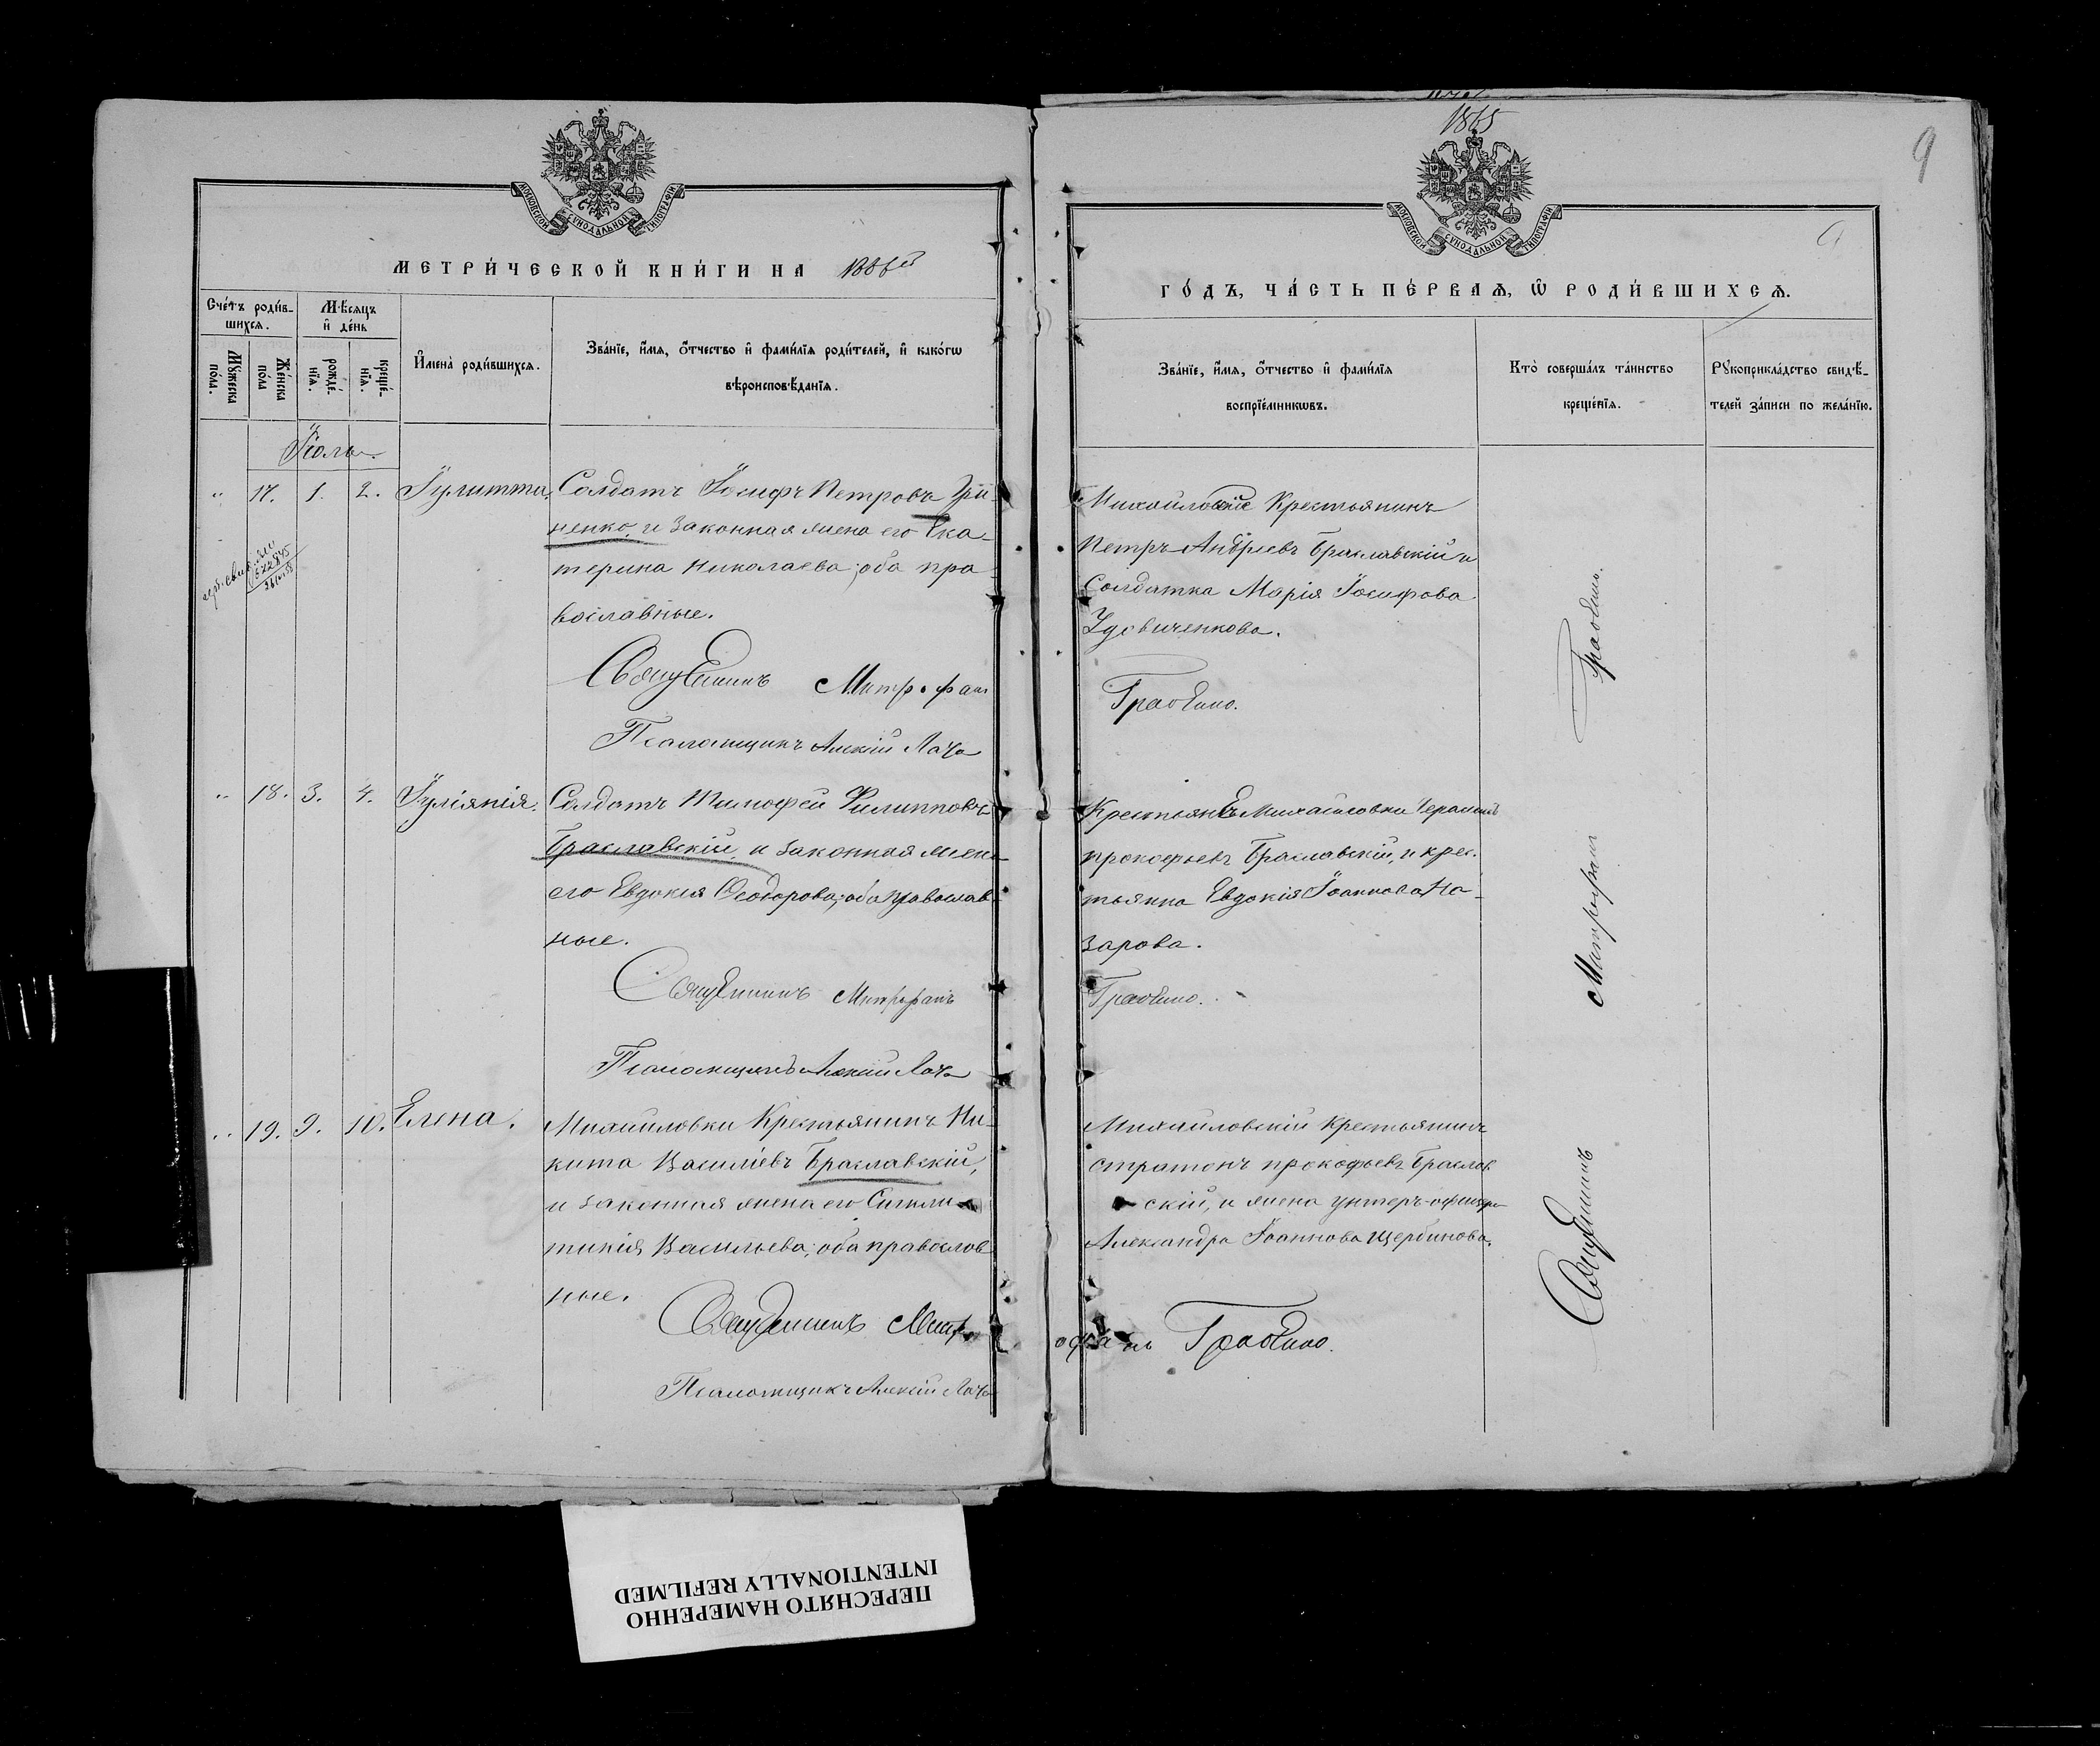 МОСКОВСКОЙ СУНОДАЛЬНОЙ ТИПОГРАФІИ
МЕТРИ́ЧЕСКОЙ КНИ́ГИ НА
Сче́тъ роди́в-
шихсѧ.
Мѣсѧцъ
и҆ де́нь
Мꙋ́жеска
по́ла.
Же́нска
по́ла
рожде́-
нїѧ.
креще́-
нїѧ.
И҆мена̀ роди́вшихсѧ.
Зва́нїе, и҆́мѧ, ѻ҆́тчество и҆ фами́лїѧ роди́телей, и҆ како́гѡ
вѣроисповѣ́данїѧ.
Іюль
17. 1. 2. Іулитта. Солдатъ Іосифъ Петровъ Гри-
ненко, и законная жена его Ека-
терина Николаева; оба пра-
вославные.
Священникъ Митрофан
Псаломщикъ Алексій Лача
18. 3. 4. Іуліянія. Солдатъ Тимофей Филипповъ
Браславскій, и законная жена
его Евдокія Ѳеодорова; оба православ-
ные.
Священникъ Митрофанъ
Псаломщикъ Алексій Лача
19. 9. 10. Елена. Михайловки Крестьянинъ Ни-
кита Василіевъ Браславскій,
и законная жена его Сигкли-
тикія Васильева; оба православ-
ные.
Священникъ Митр
Псаломщикъ Алексій Лача
1865
9
МОСКОВСКОЙ СУНОДАЛЬНОЙ ТИПОГРАФІИ
ГО́ДЪ, ЧА́СТЬ ПЕ́РВАѦ, Ѽ РОДИ́ВШИХСѦ.
Зва́нїе, и҆́мѧ, ѻ҆́тчество и҆ фами́лїѧ
воспрїе́мникѡвъ.
Кто̀ соверша́лъ та́инство
креще́нїѧ.
Рꙋкоприкла́дство свидѣ́-
телей за́писи по жела́нїю.
Крестьянинъ
Петръ Андреевъ Браславскій и
Солдатка Марія Іосифова
Удовиченкова.
Грабенко.
Крестьян Михайловки Герасимъ
Прокофьевъ Браславскій, и крес-
тьянка Евдокія Іоаннова На-
зарова.
Грабенко.
Михайловскій Крестьянинъ
Стратонъ Прокофьевъ Браслав-
скій, и жена унтеръ-офицера
Александра Іоаннова Щербинова.
офанъ Грабенко.
Священникъ Митрофан Грабенко.
ПЕРЕСНЯТО НАМЕРЕННО
INTENTIONALLY REFILMED